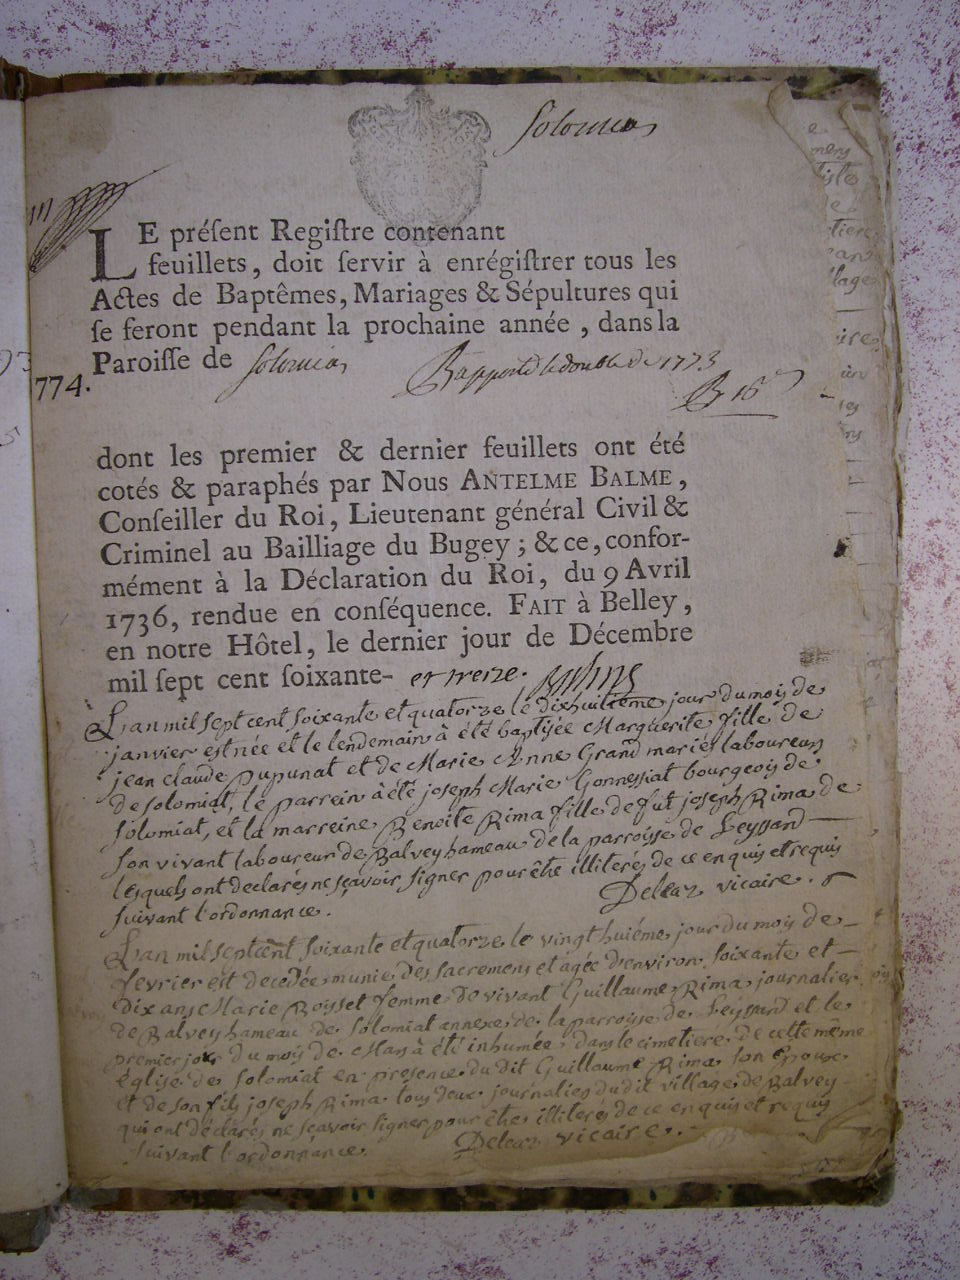 Solomia
LE préſent Regiſtre contenant
feuillets, doit ſervir à enrégiſtrer tous les
Actes de Baptêmes, Mariages & Sépultures qui
ſe feront pendant la prochaine année, dans la
Paroiſſe de Solomia Rapporté le double de 1773
774.
dont les premier & dernier feuillets ont été
cotés & paraphés par Nous ANTELME BALME,
Conſeiller du Roi, Lieutenant général Civil &
Criminel au Bailliage du Bugey; & ce, confor-
mément à la Déclaration du Roi, du 9 Avril
1736, rendue en conſéquence. FAIT à Belley,
en notre Hôtel, le dernier jour de Décembre
mil ſept cent ſoixante- et treize.
L'an mil sept cent soixante et quatorze le dixhuitieme jour du mois de
janvier est née et le lendemain à été baptisée Marguerite fille de
jean claude pupunat et de Marie Anne Grand mariés laboureurs
de solomiat, le parrein à été joseph Marie Gonnessiat bourgeois de
solomiat, et la marreine Benoite Rima fille de fut joseph Rima de
son vivant laboureur de Balvey hameau de la parroisse de Leyssard
lesquels ont declarés ne sçavoir signer pour être illiterés de ce enquis et requis
suivant l'ordonnance. Deleaz vicaire.
L'an mil sept cent soixante et quatorze le vingt huiéme jour du mois de
fevrier est decedée munie des sacremens et agée d'environ soixante et
dix ans Marie Boysset femme de vivant Guillaume Rima journalier
de Balvey hameau de solomiat annexe de la parroisse de Leyssard et le
premier jour du mois de Mars à été inhumée dans le cimetiere de cette même
église de solomiat en presence du dit Guillaume Rima son Epoux
et de son fils joseph Rima tous deux journaliés du dit village de Balvey
qui ont déclarés ne sçavoir signer pour être illiterés de ce enquis et requis
suivant l'ordonnance. Deleaz vicaire.